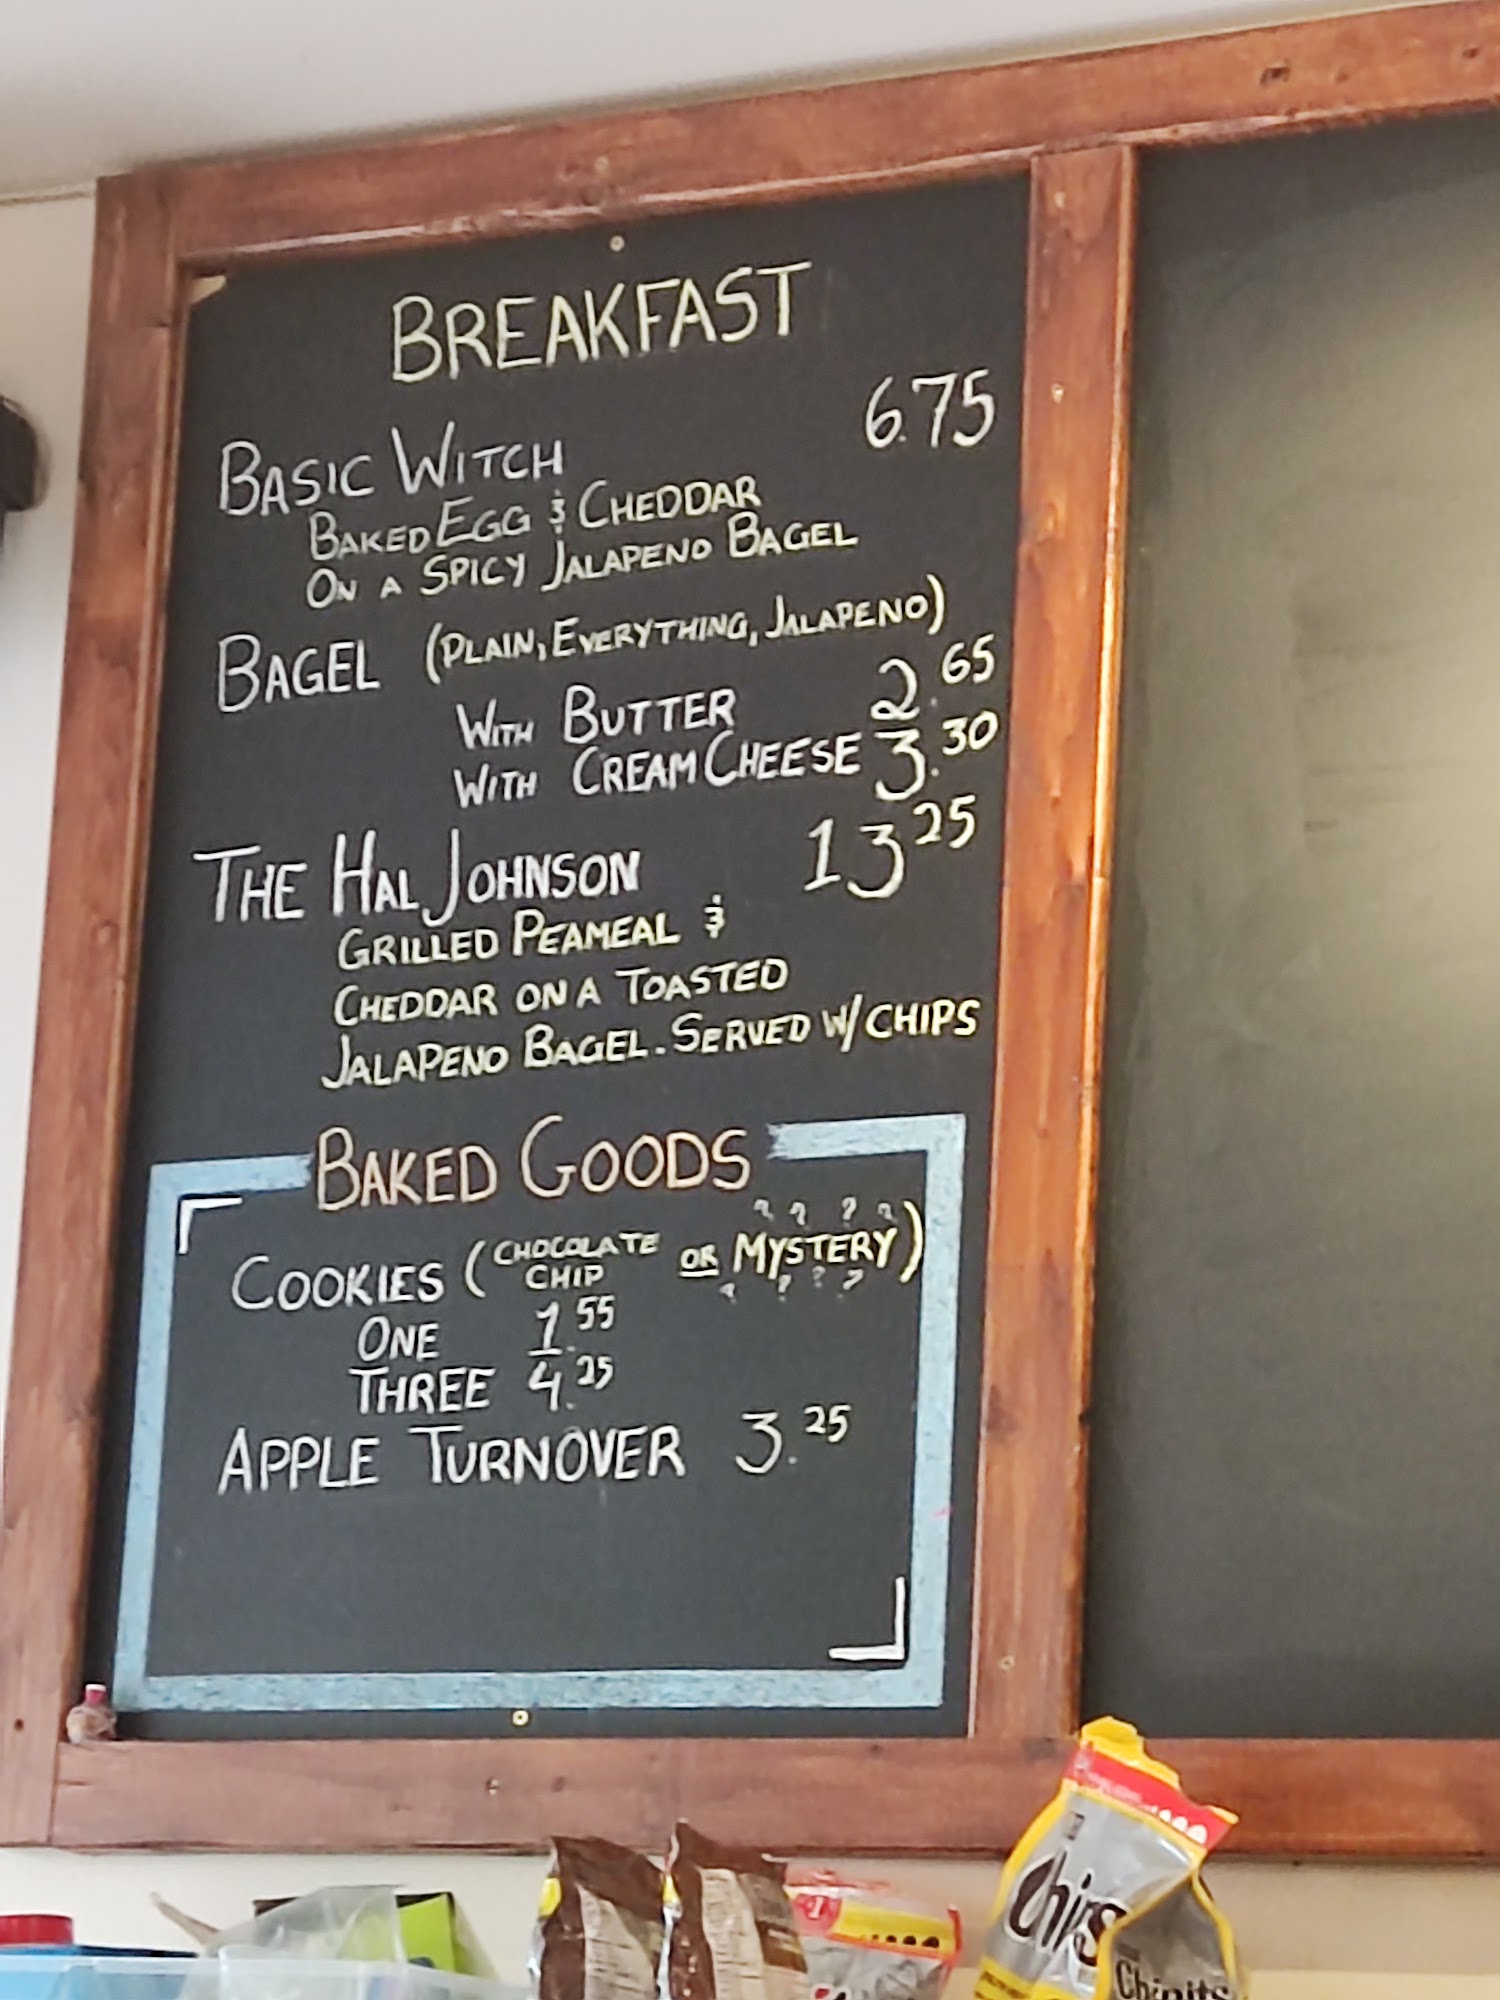 BREAKFAST
BASIC WITCH 6.75
BAKED EGG & CHEDDAR
ON A SPICY JALAPENO BAGEL
BAGEL (PLAIN, EVERYTHING, JALAPENO)
WITH BUTTER 2.65
WITH CREAM CHEESE 3.30
THE HAL JOHNSON 13 25
GRILLED PEAMEAL &
CHEDDAR ON A TOASTED
JALAPENO BAGEL. SERVED W/ CHIPS
BAKED GOODS
? ? ? ?
COOKIES (CHOCOLATE CHIP OR MYSTERY)
? ? ? ?
ONE 1.55
THREE 4.25
APPLE TURNOVER 3.25
Chipits